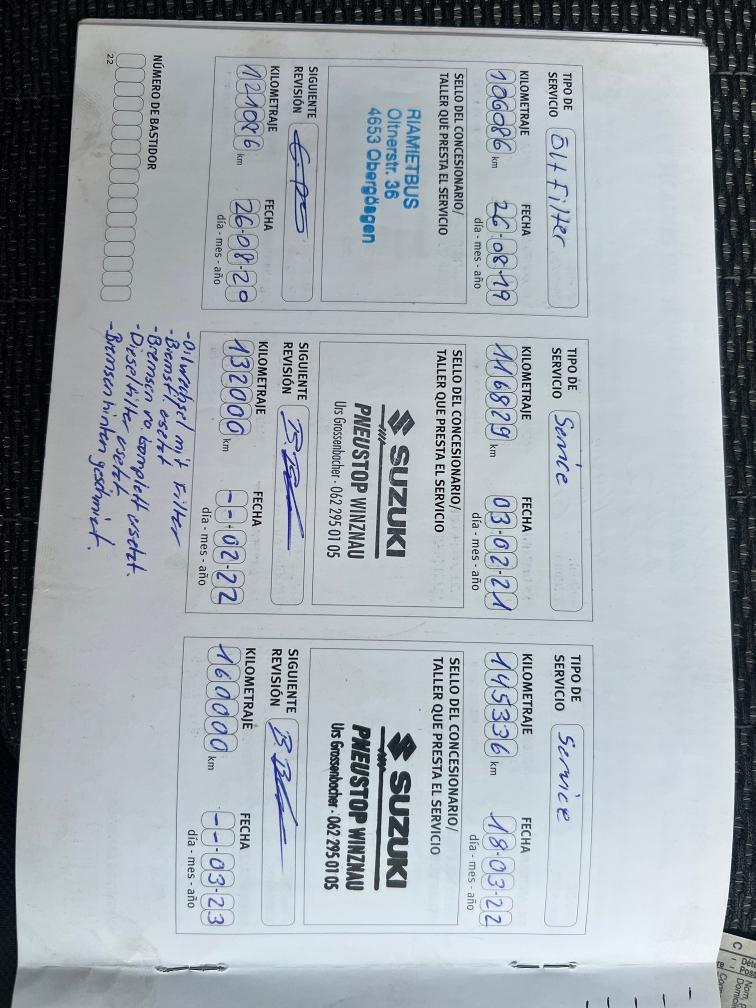 TIPO DE
SERVICIO Öl+Filter
KILOMETRAJE FECHA
106086 km 26-08-19
día - mes - año
SELLO DEL CONCESIONARIO/
TALLER QUE PRESTA EL SERVICIO
RIAMIETBUS
Oltnerstr. 36
4653 Obergösgen
SIGUIENTE
REVISIÓN
KILOMETRAJE FECHA
121086 km 26-08-20
día - mes - año
NÚMERO DE BASTIDOR
22
TIPO DE
SERVICIO Service
KILOMETRAJE FECHA
116829 km 03-02-21
día - mes - año
SELLO DEL CONCESIONARIO/
TALLER QUE PRESTA EL SERVICIO
SUZUKI
PNEUSTOP WINZNAU
Urs Grossenbacher · 062 295 01 05
SIGUIENTE
REVISIÓN
KILOMETRAJE FECHA
132000 km --02-22
día - mes - año
-Oilwechsel mit Filter
-Bremsfl. esetzt
-Bremsen vo komplett esetzt.
-Dieselfilter esetzt
-Bremsen hinten geschmiert.
TIPO DE
SERVICIO Service
KILOMETRAJE FECHA
145336 km 18-03-22
día - mes - año
SELLO DEL CONCESIONARIO/
TALLER QUE PRESTA EL SERVICIO
SUZUKI
PNEUSTOP WINZNAU
Urs Grossenbacher · 062 295 01 05
SIGUIENTE
REVISIÓN
KILOMETRAJE FECHA
160000 km --03-23
día - mes - año